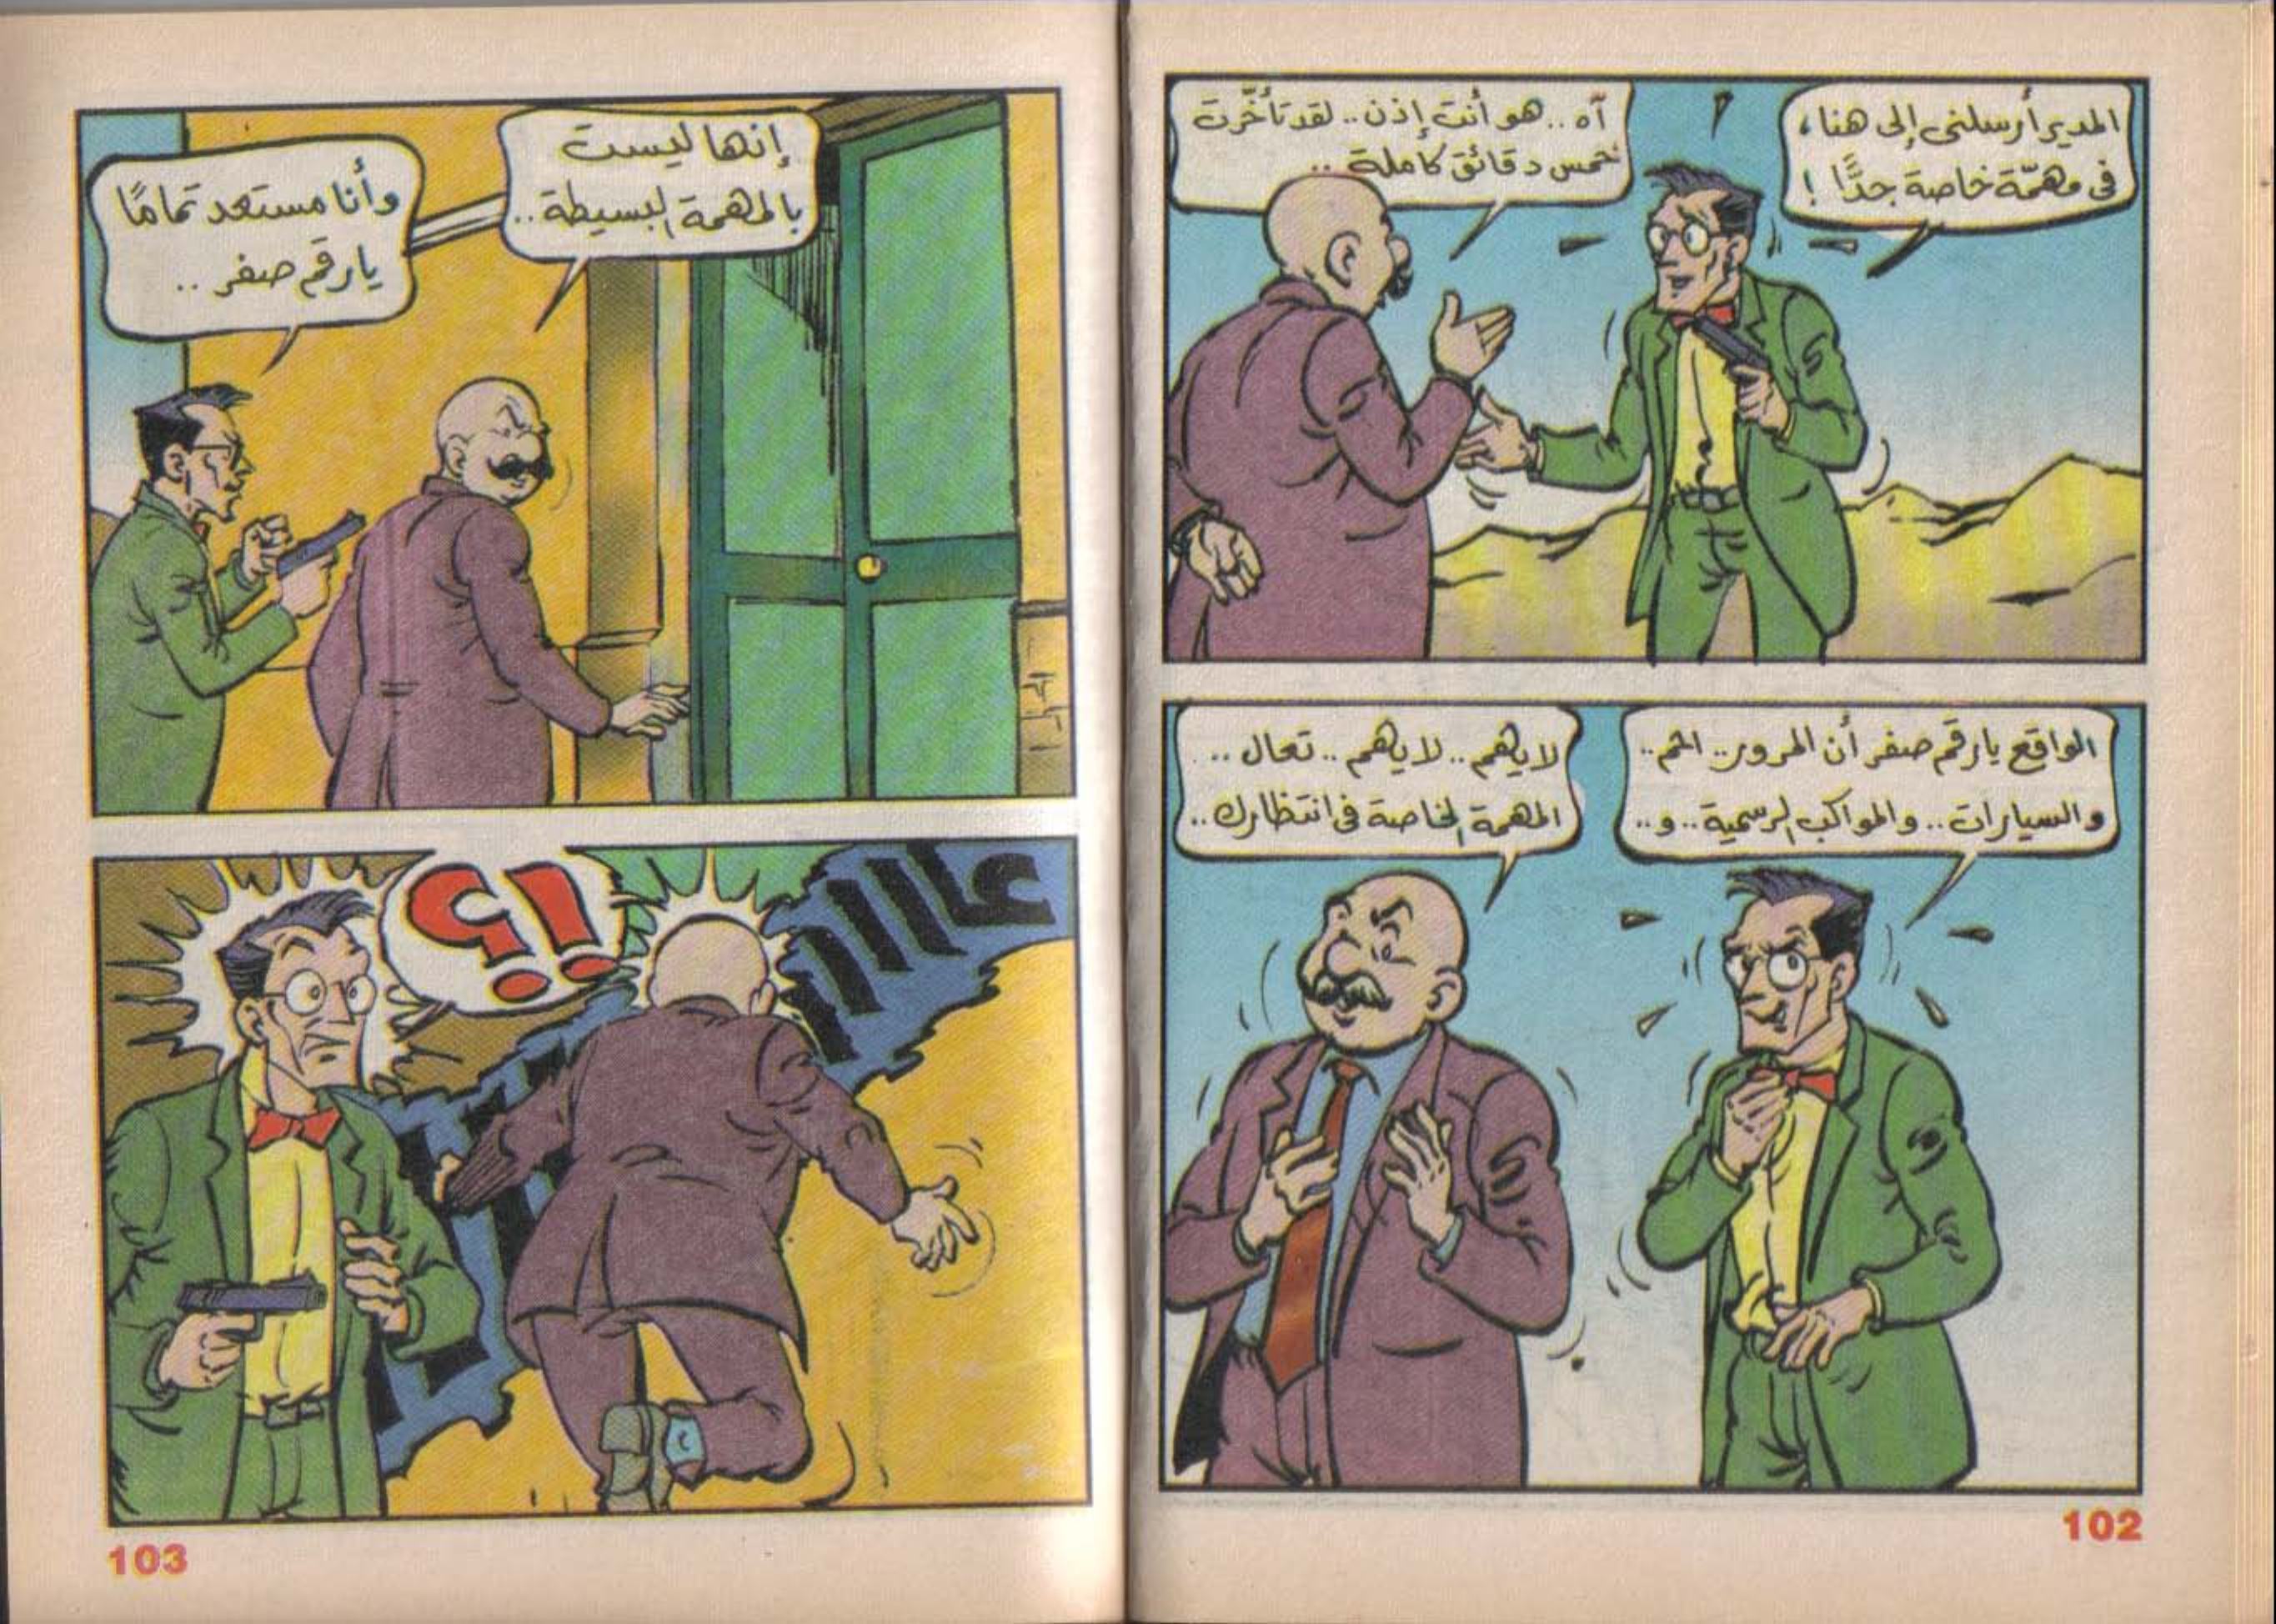 المدير أرسلنى إلى هنا،
فى مهمّة خاصة جدًّا !
آه .. هو أنت إذن .. لقد تأخّرت
خمس دقائق كاملة ..
الواقع يا رقم صفر أن المرور .. احم ..
والسيارات .. والمواكب الرسمية .. و ..
لا يهم .. لا يهم .. تعال ..
المهمة الخاصة فى انتظارك ..
102
إنها ليست
بالمهمة البسيطة ..
وأنا مستعد تمامًا
يا رقم صفر ..
!؟
103